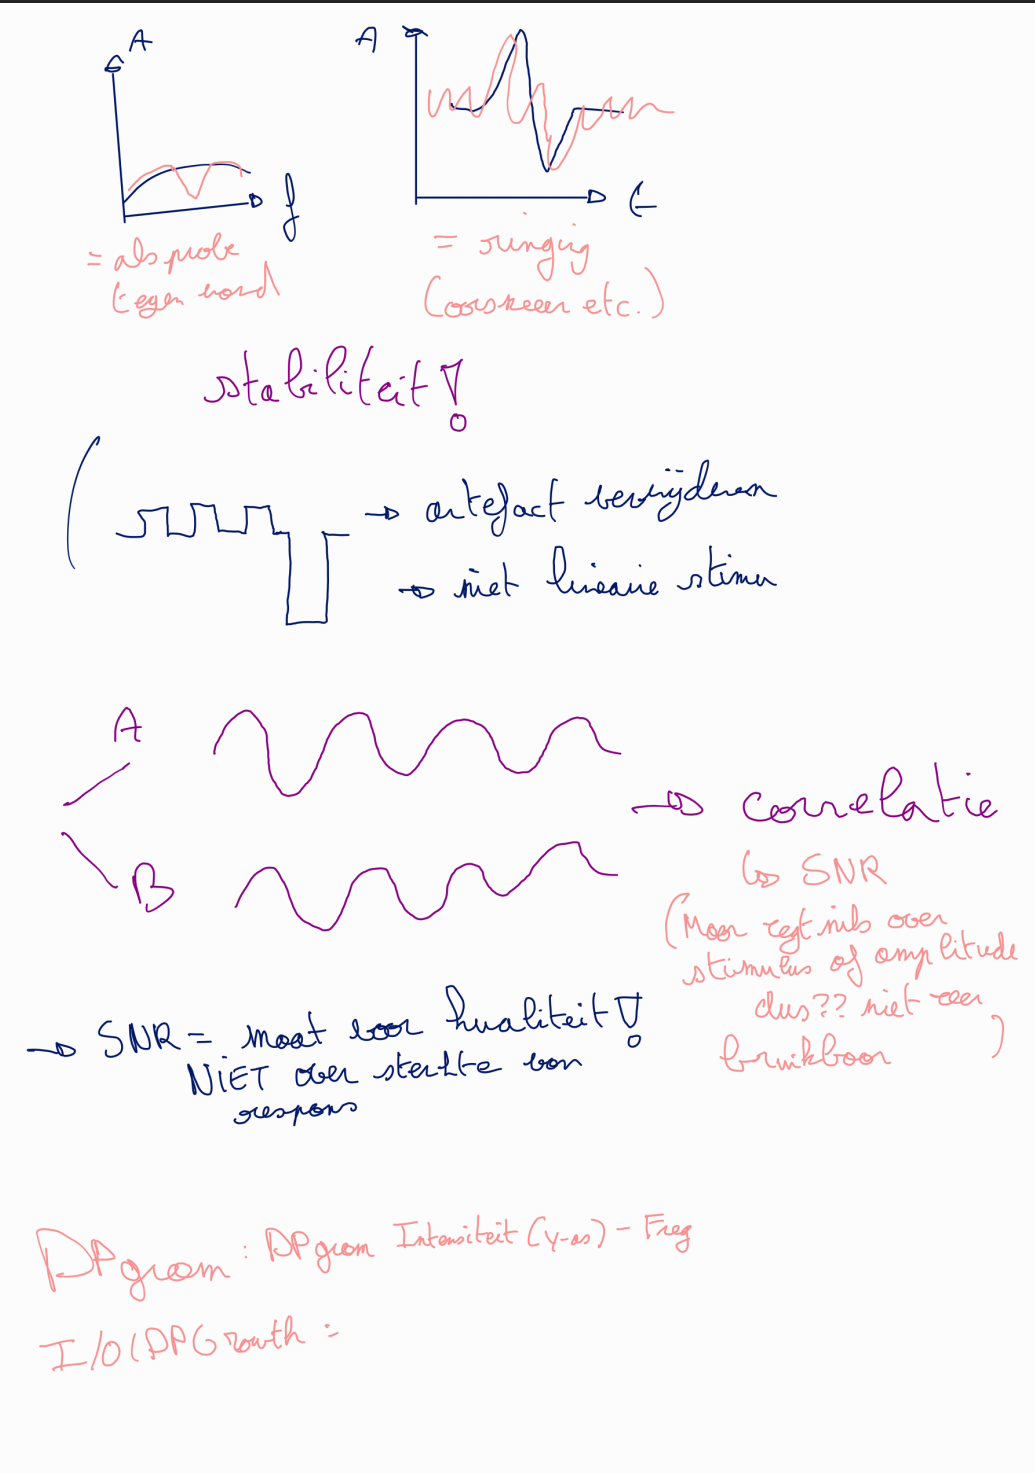 A
f
= als probe
tegen wand
A
t
= ringing
(oorsmeer etc.)
stabiliteit!
→ artefact verwijderen
→ niet lineaire stimu
A
B
→ correlatie
↳ SNR
(Maar zegt niks over
stimulus of amplitude
dus?? niet zeer
bruikbaar)
→ SNR = maat voor kwaliteit!
NIET over sterkte van
respons
DPgram: DPgram Intensiteit (y-as) - Freq
I/O(DPGrowth =